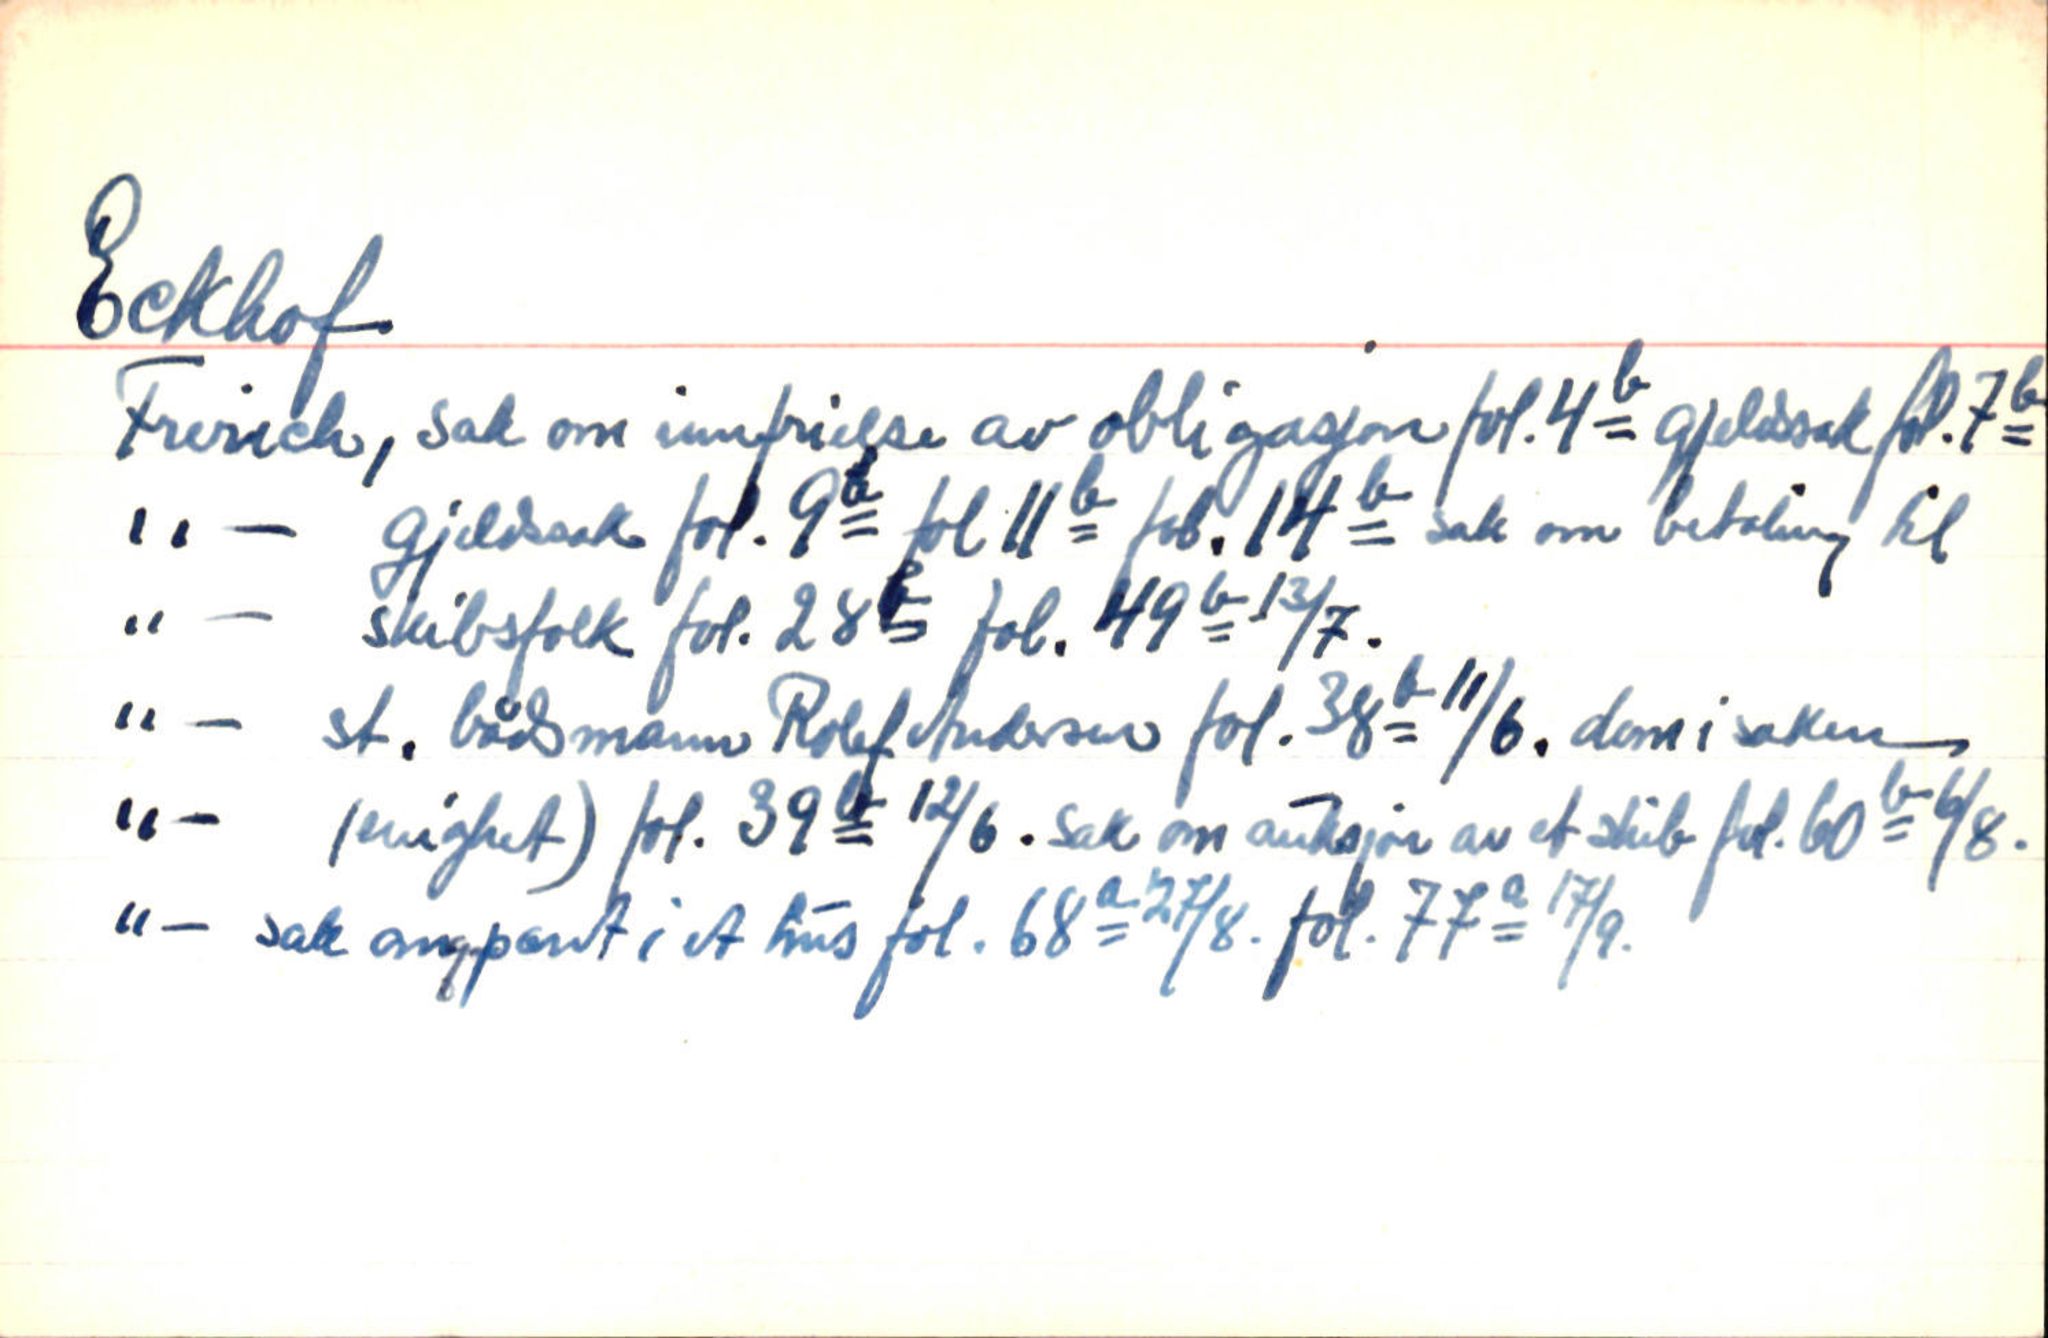 Eckhof
Frerich, sak om innfrielse av obligasjon fol. 4b gjeldssak fol. 7b
"— gjeldssak fol. 9b fol 11b fol. 14b sak om betaling til
"— skibsfolk fol. 28b fol. 49b 13/7.
"— st. båtsmann Rolef Andersen fol. 38b 11/6. dom i saken
"— (enighet) fol. 39b 12/6. sak om auksjon av et skib fol. 60b 6/8.
"— sak ang pant i et hus fol. 68a 27/8. fol. 77a 17/9.